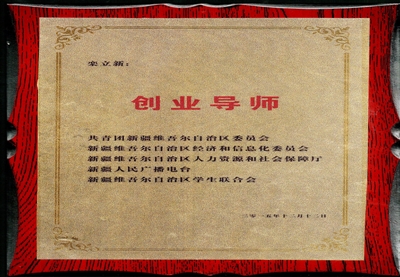 栾立新：
创业导师
共青团新疆维吾尔自治区委员会
新疆维吾尔自治区经济和信息化委员会
新疆维吾尔自治区人力资源和社会保障厅
新疆人民广播电台
新疆维吾尔自治区学生联合会
二〇一五年十二月十二日